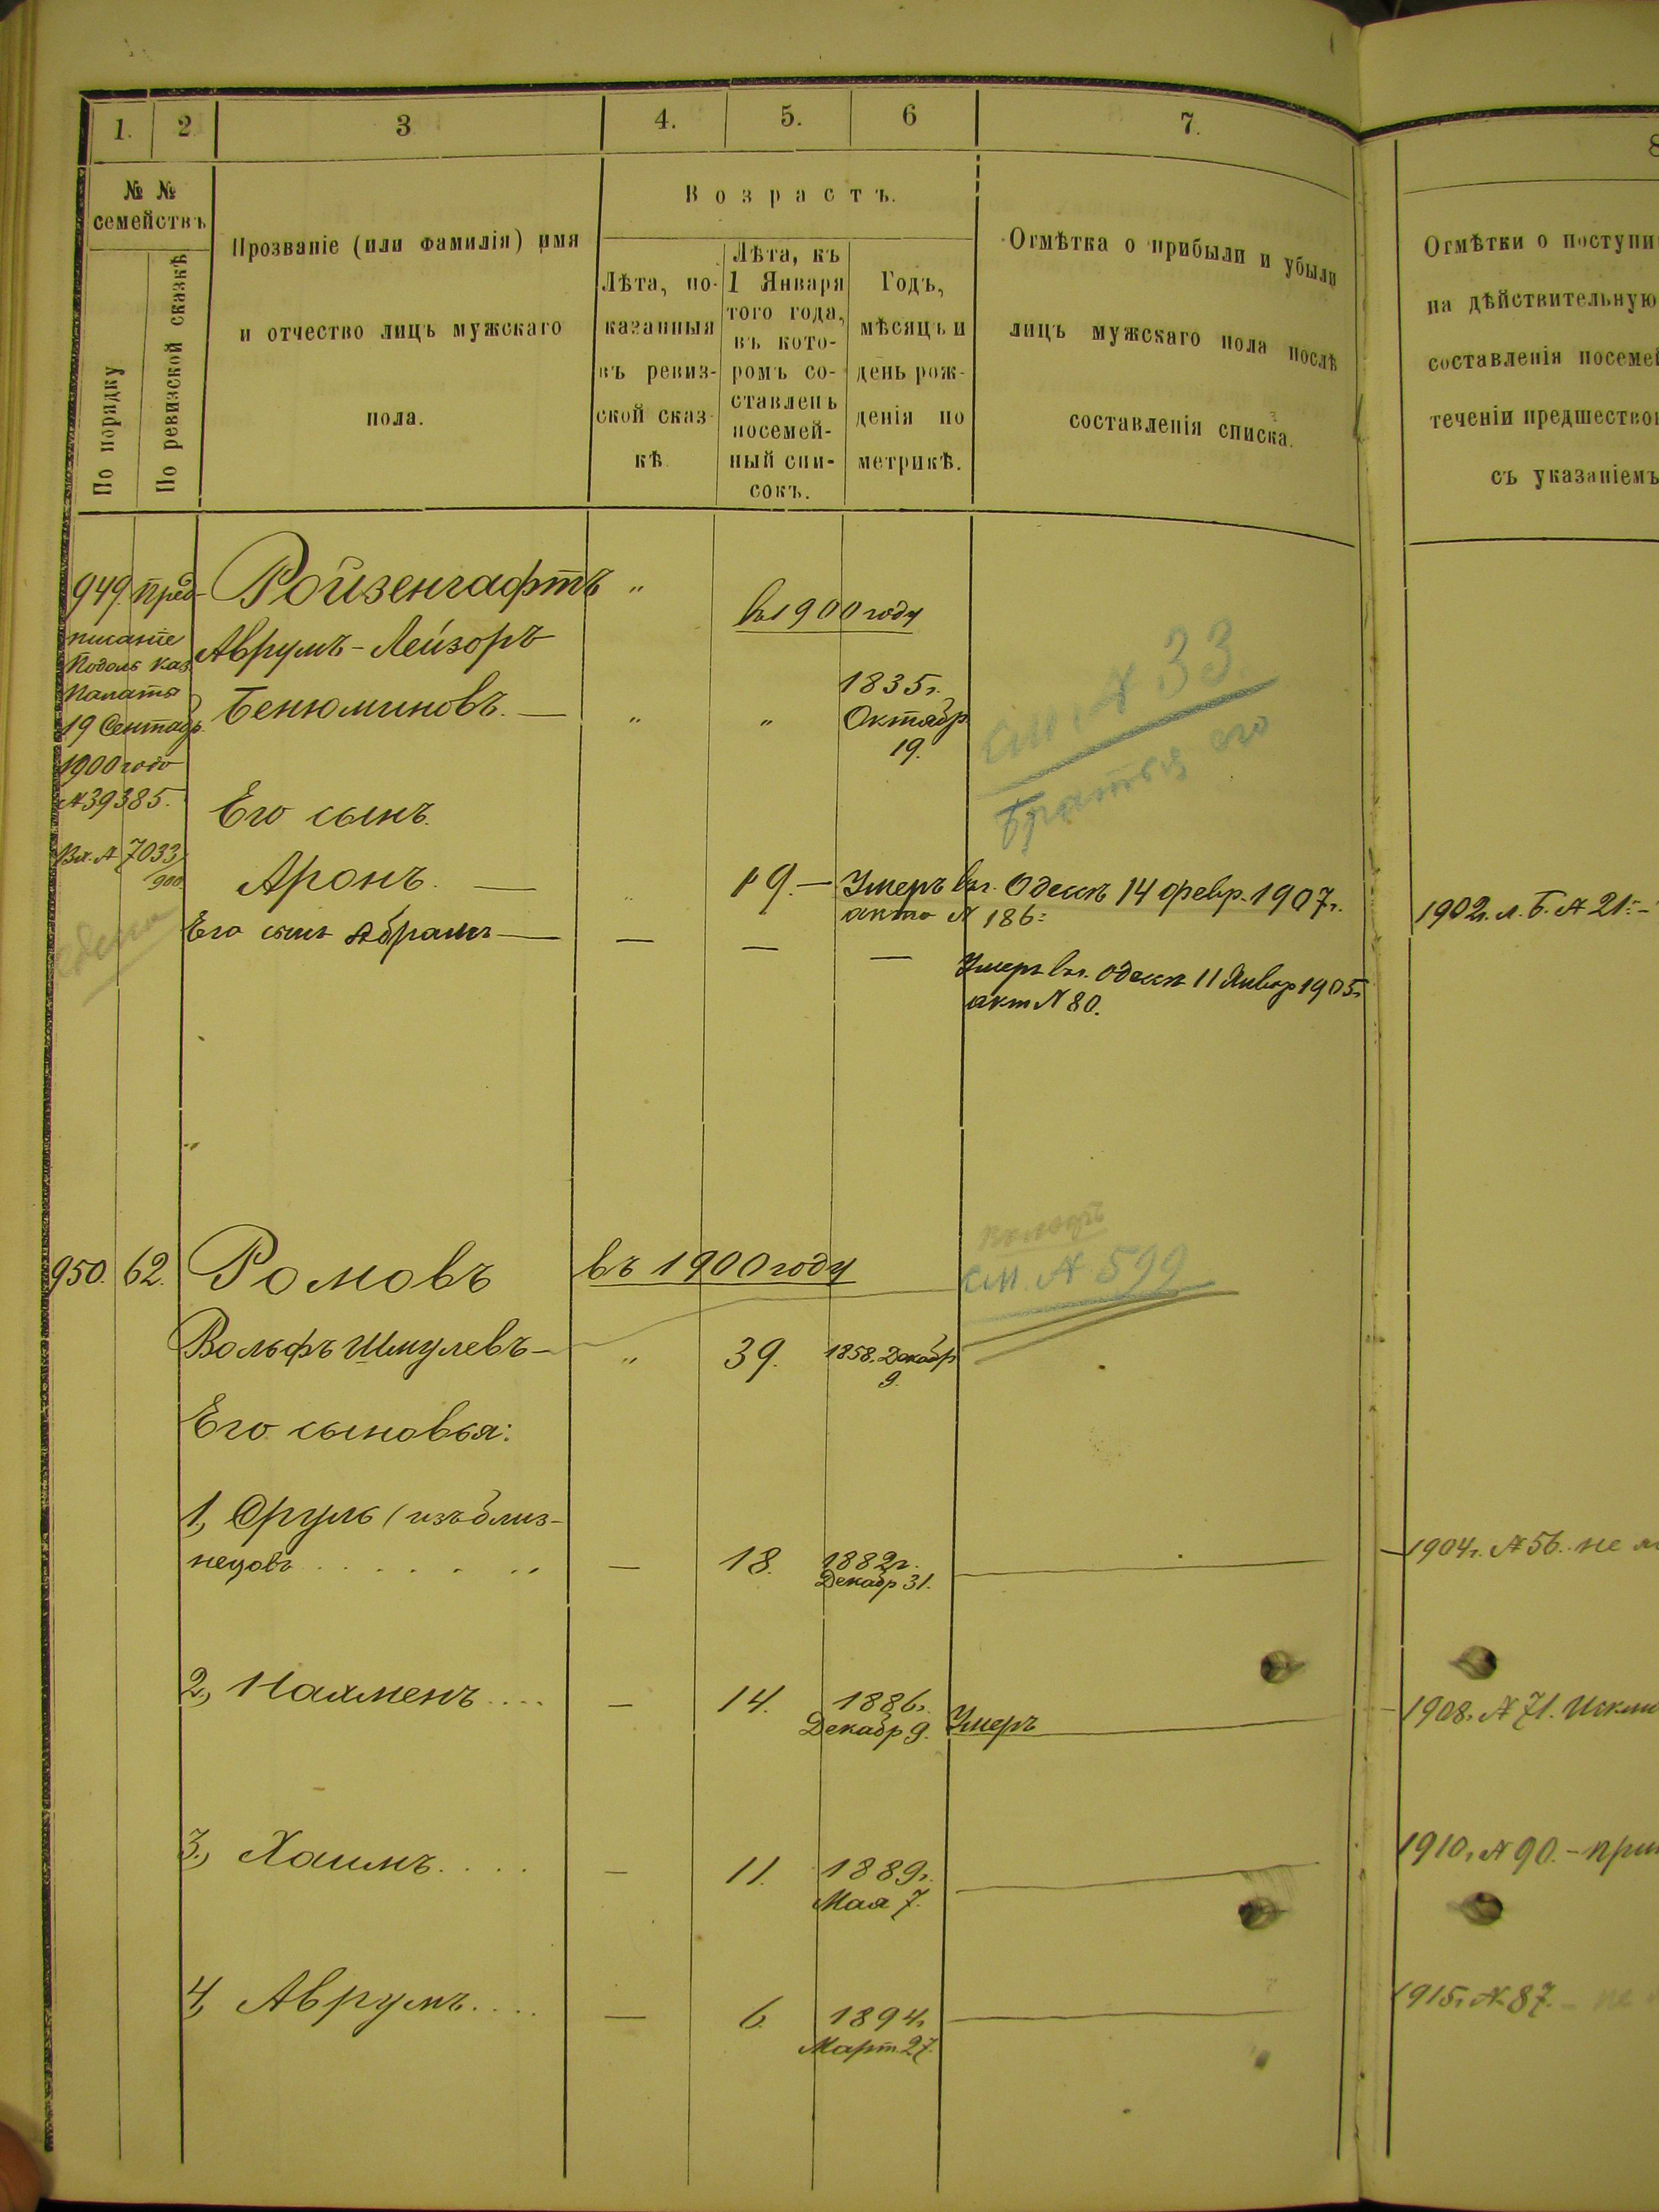 1. 2. 3 4. 5. 6 7. 8
№ №
семействъ
По порядку
По ревизской сказкѣ
Прозваніе (или фамилія) имя
и отчество лицъ мужскаго
пола.
Возрастъ.
Лѣта, по-
казанныя
въ ревиз-
ской сказ-
кѣ
Лѣта, къ
1 Января
того года,
въ кото-
ромъ со-
ставленъ
посемей-
ный спи-
сокъ.
Годъ,
мѣсяцъ и
день рож-
денія по
метрикѣ.
Отмѣтка о прибыли и убыли
лицъ мужскаго пола послѣ
составленія списка.
Отмѣтки о поступи
на дѣйствительную
составленія посемей
теченіи предшество
съ указаніемъ
949. Пред-
писаніе
Подоль каз
Палаты
19 Сентабр.
1900 года
№ 39385.
Вх. № 7033/
900
Ройзенгафтъ "
Аврумъ-Лейзоръ
Бенюминовъ. — " "
въ 1900 году
1835г.
Октябр
19.
см. № 33.
братья его
Его сынъ.
Аронъ. — " 19. — Умеръ въ г. Одессѣ 14 февр. 1907г.
актъ № 186
1902г. л. Б. № 21 –
Его сынъ Абрамъ — — — —
Умеръ въ г. Одессѣ 11 Январ 1905г
акт № 80.
950. 62. Ромовъ въ 1900 году
см. № 599
Вольфъ Шмулевъ – " 39. 1858. Декабр
9.
Его сыновья:
1., Сруль (изъ близ-
нецовъ — 18. 1882г.
Декабр 31.
1904г. № 56. не
2., Нахменъ .... — 14. 1886г.
Декабр 9. Умеръ
1908г. № 71. Исклю
3., Хаимъ. . . . — 11. 1889г.
Мая 7.
1910г. № 90. – при
4, Аврумъ.... — 6. 1894г.
Март. 27.
1915г. № 87. – не